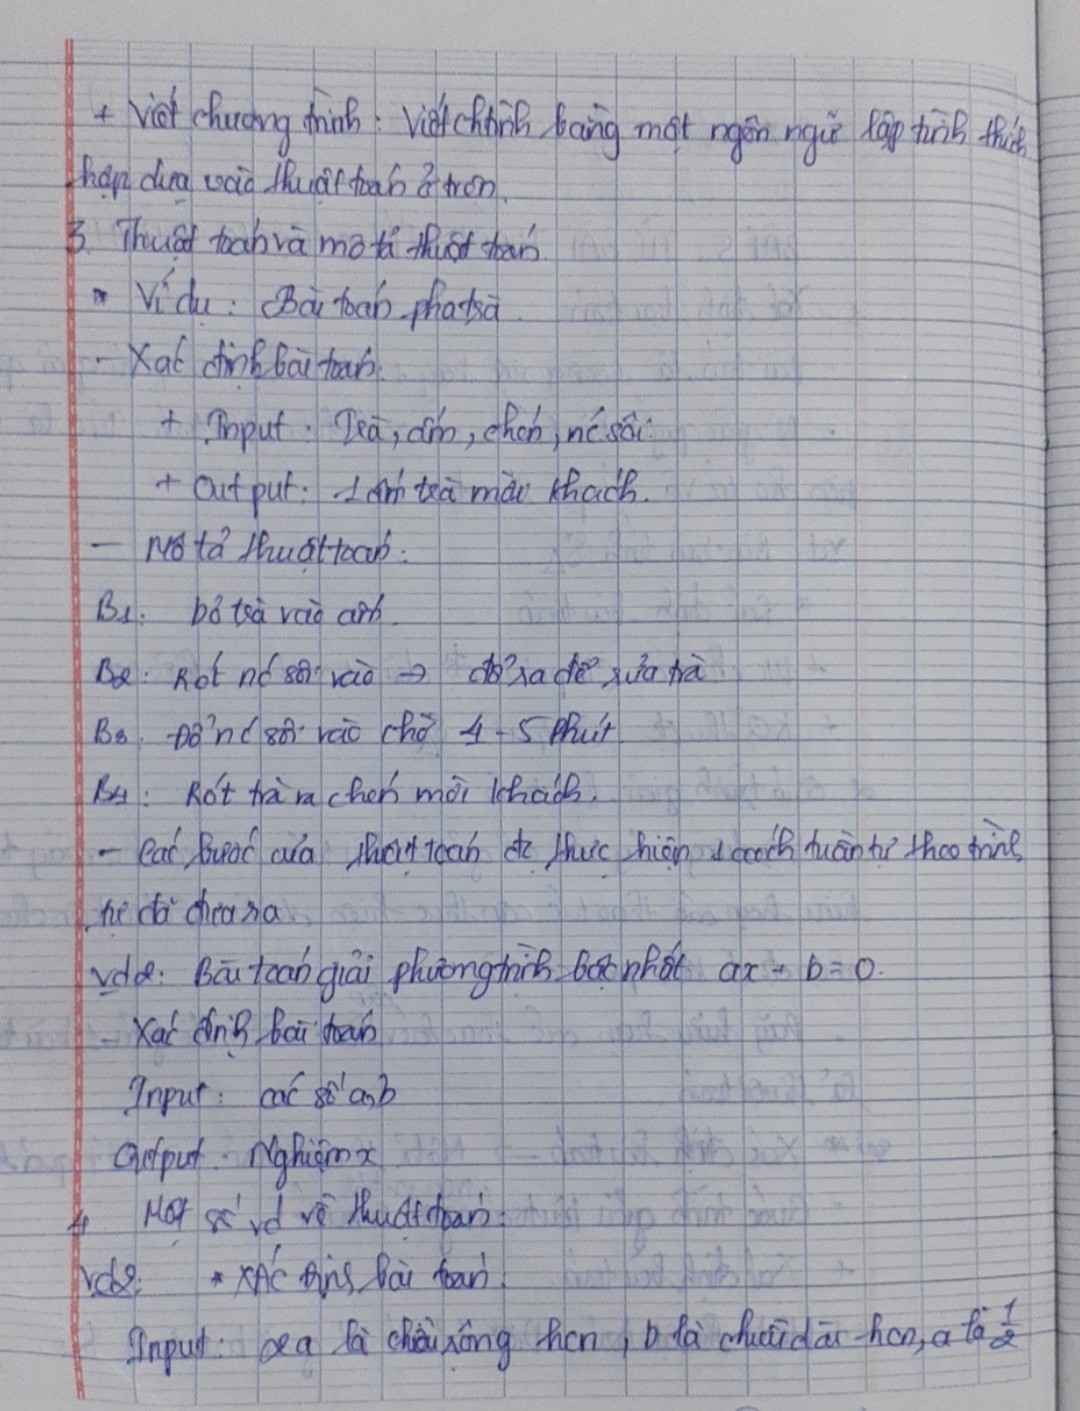 + Viết chương trình: Viết chtrình bằng một ngôn ngữ lập trình thích
hợp dựa vào thuật toán ở trên.
3. Thuật toán và mô tả thuật toán
* Ví dụ: Bài toán pha trà
- Xác định bài toán.
+ Input: Trà, ấm, chén, nc sôi.
+ Output: 1 ấm trà mời khách.
- Mô tả thuật toán:
B1: bỏ trà vào ấm
B2: Rót nc sôi vào → đổ ra để rửa trà
B3: Đổ nc sôi vào chờ 4-5 phút
B4: Rót trà ra chén mời khách.
- Các bước của thuật toán đc thực hiện 1 cách tuần tự theo trình
tự đã đưa ra
Vd2: Bài toán giải phương trình bậc nhất ax + b = 0.
- Xác định bài toán
Input: các số a, b
Output: Nghiệm x
4. Một số vd về thuật toán:
Vd2: * Xác định bài toán.
Input: a là chiều rộng hcn, b là chiều dài hcn, a là 1/2